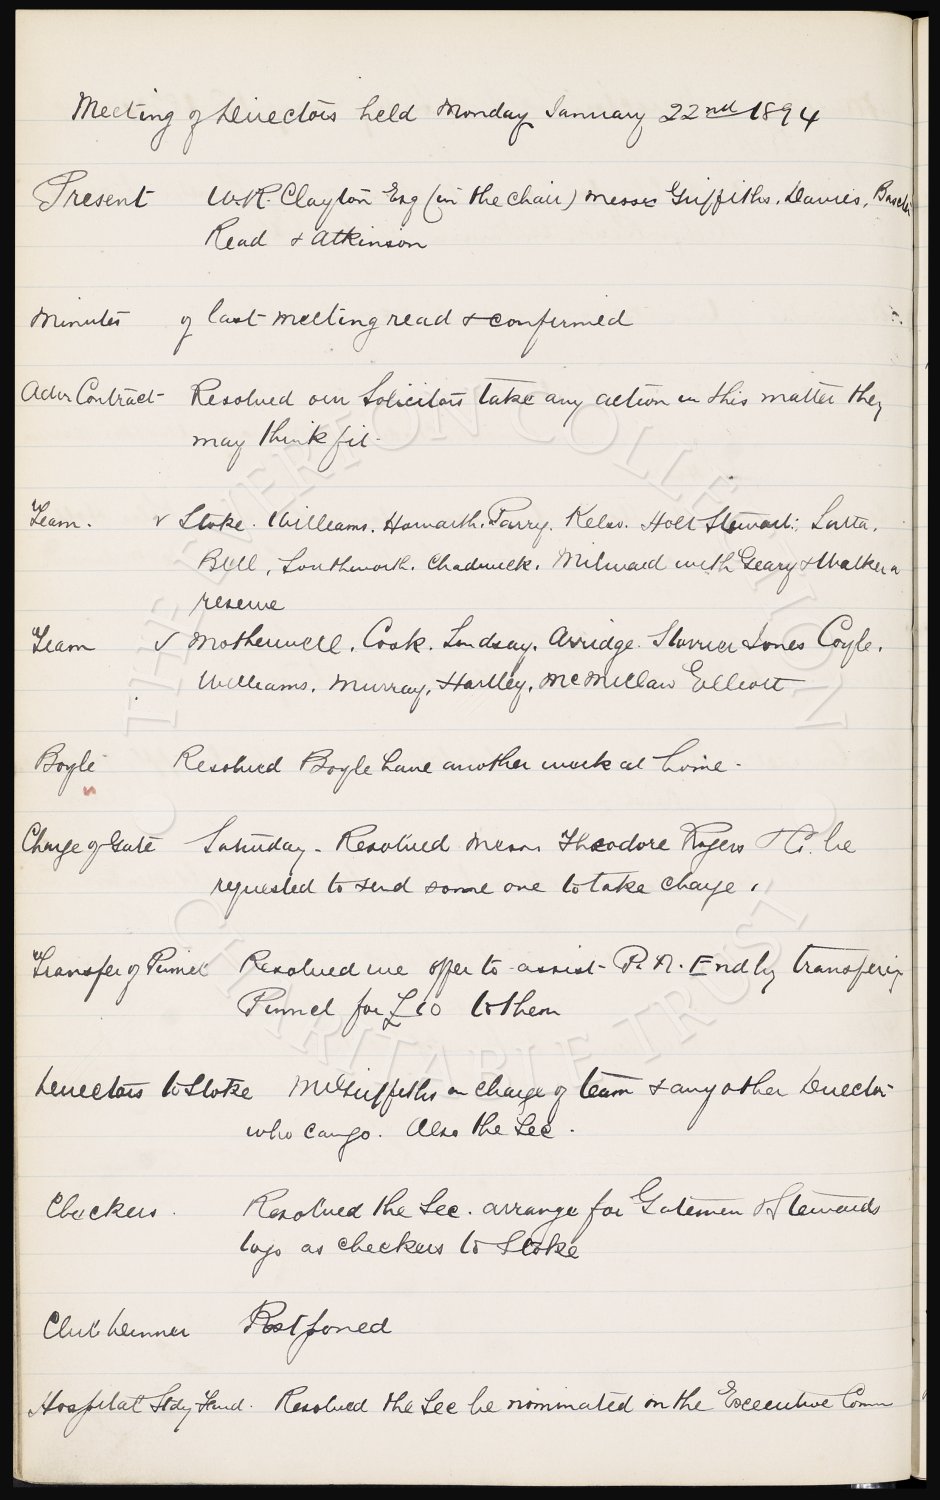 Meeting of Directors held Monday January 22nd 1894
Present W.R. Clayton Esq (in the chair) Messrs Griffiths, Davies,
Read & Atkinson
Minutes of last meeting read & confirmed
Advr Contract - Resolved our Solicitors take any action in this matter they
may think fit -
Team. v Stoke. Williams. Howarth. Parry. Kelso. Holt Stewart. Latta.
Bell, Southworth. Chadwick. Milward with Geary & Walker a
reserve
Team v Motherwell. Cook. Lindsay. Arridge. Storrier Jones Coyle.
Williams. Murray, Hartley, McMillan Elliott
Boyle Resolved Boyle have another week at home -
Charge of Gate Saturday - Resolved Messrs Theodore Rogers & Co. be
requested to send some one to take charge.
Transfer of Pinnel Resolved we offer to assist P.N. End by transferring
Pinnel for £10 to them
Directors to Stoke Mr Griffiths in charge of team & any other Director
who can go. Also the Sec.
Checkers. Resolved the Sec. arrange for Gatemen & Stewards
to go as checkers to Stoke
Club Dinner Postponed
Hospital Stdy Fund. Resolved the Sec be nominated on the Executive Comm
THE EVERTON COLLECTION
CHARITABLE TRUST